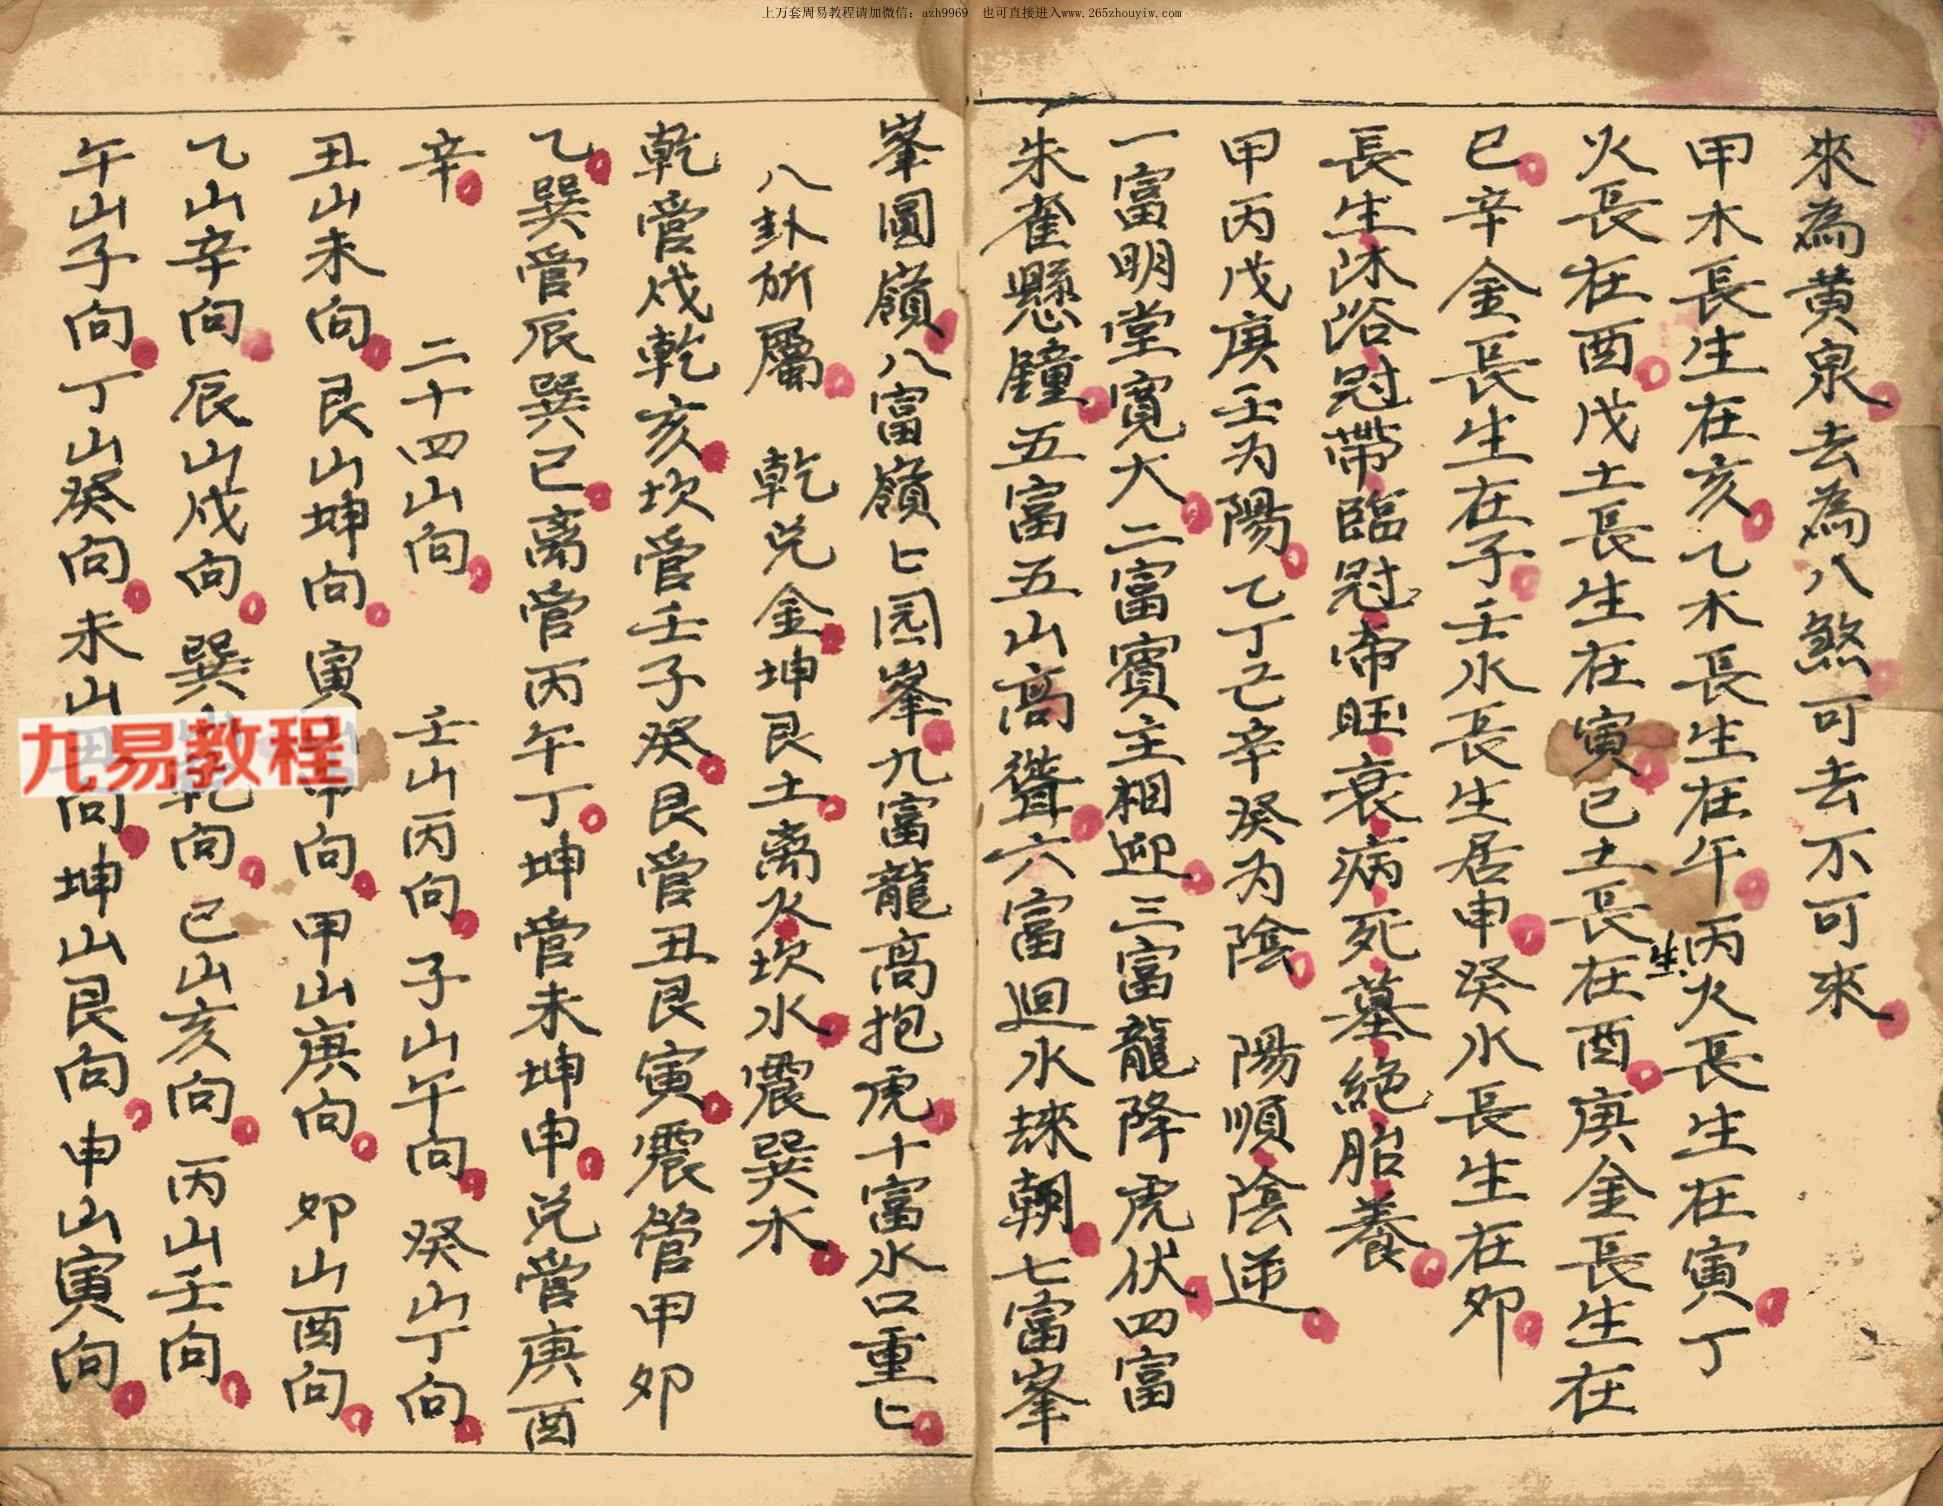 上万套周易教程请加微信：azh9969　也可直接进入www.265zhouyiw.com
來為黄泉去為八煞可去不可來
甲木長生在亥乙木長生在午丙火長生在寅丁
火長在酉戊土長生在寅己土長生在酉庚金長生在
巳辛金長生在子壬水長生居申癸水長生在卯
長生沐浴冠帶臨冠帝旺衰病死墓絶胎養
甲丙戊庚壬为陽乙丁己辛癸为陰 陽順陰逆
一富明堂寬大二富賓主相迎三富龍降虎伏四富
朱雀懸鐘五富五山高聳六富迴水朝七富峯
峯圓嶺八富嶺匕园峯九富龍高抱虎十富水口重匕
八卦所屬 乾兑金坤艮土离火坎水震巽木
乾管戌乾亥坎管壬子癸艮管丑艮寅震管甲卯
乙巽管辰巽巳离管丙午丁坤管未坤申兑管庚酉
辛 二十四山向 壬山丙向 子山午向 癸山丁向
丑山未向 艮山坤向 寅 向 甲山庚向 卯山酉向
乙山辛向 辰山戌向 巽 乾向 巳山亥向 丙山壬向
午山子向 丁山癸向 未山 向 坤山艮向 申山寅向
九易教程